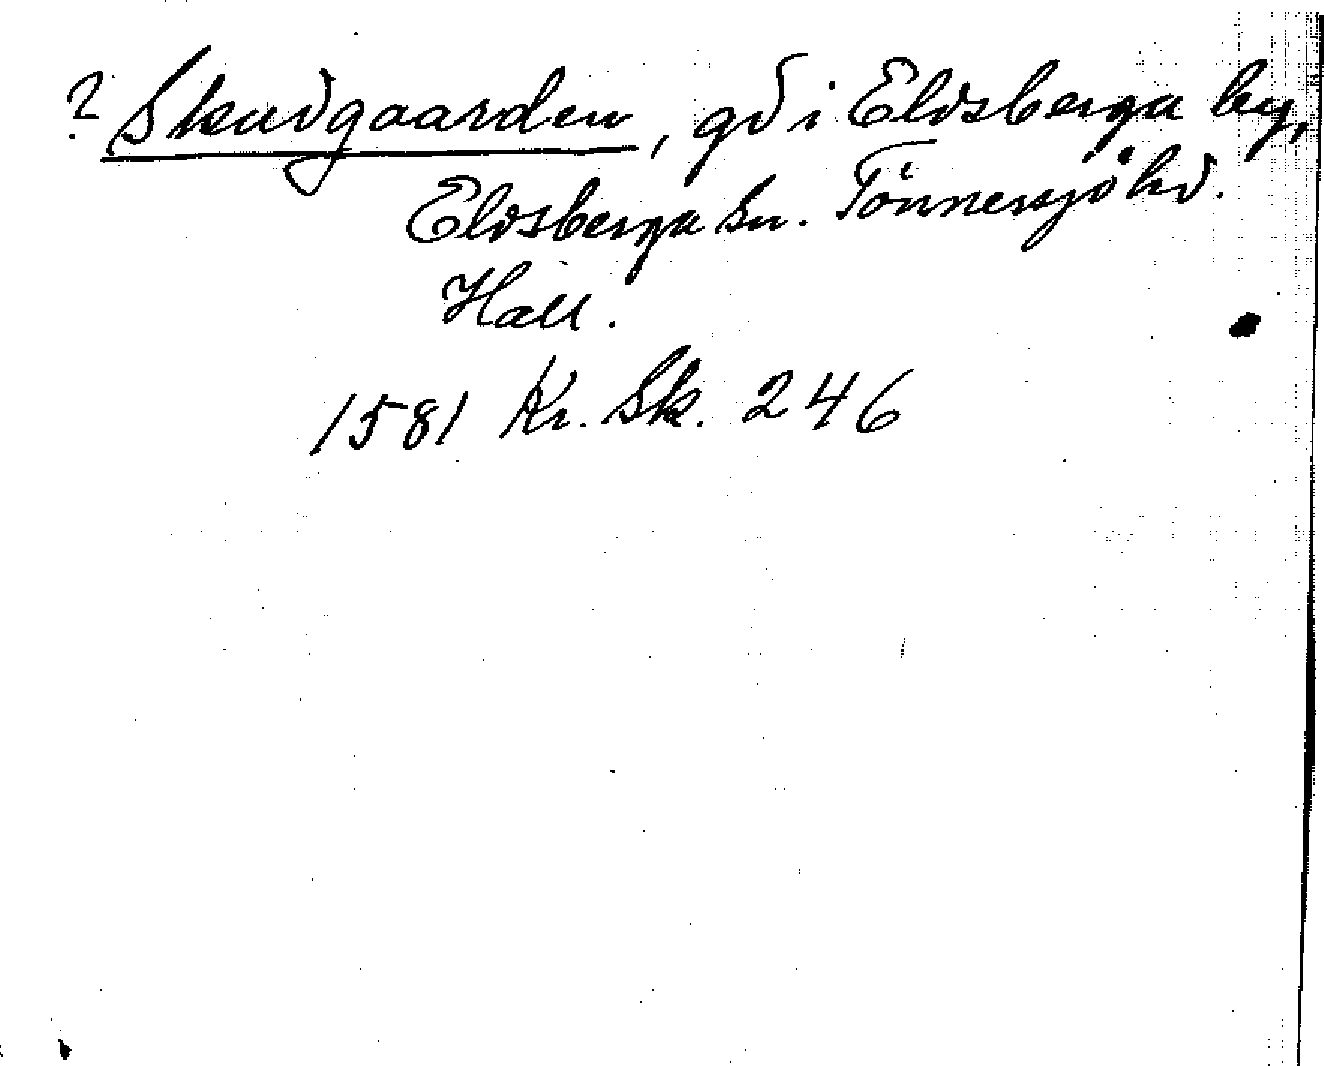 ? Skudgaarden, gd i Eldsberga by,
Eldsberga sn. Tönnersjö hd.
Hall.
1581 Kr. Sk. 246